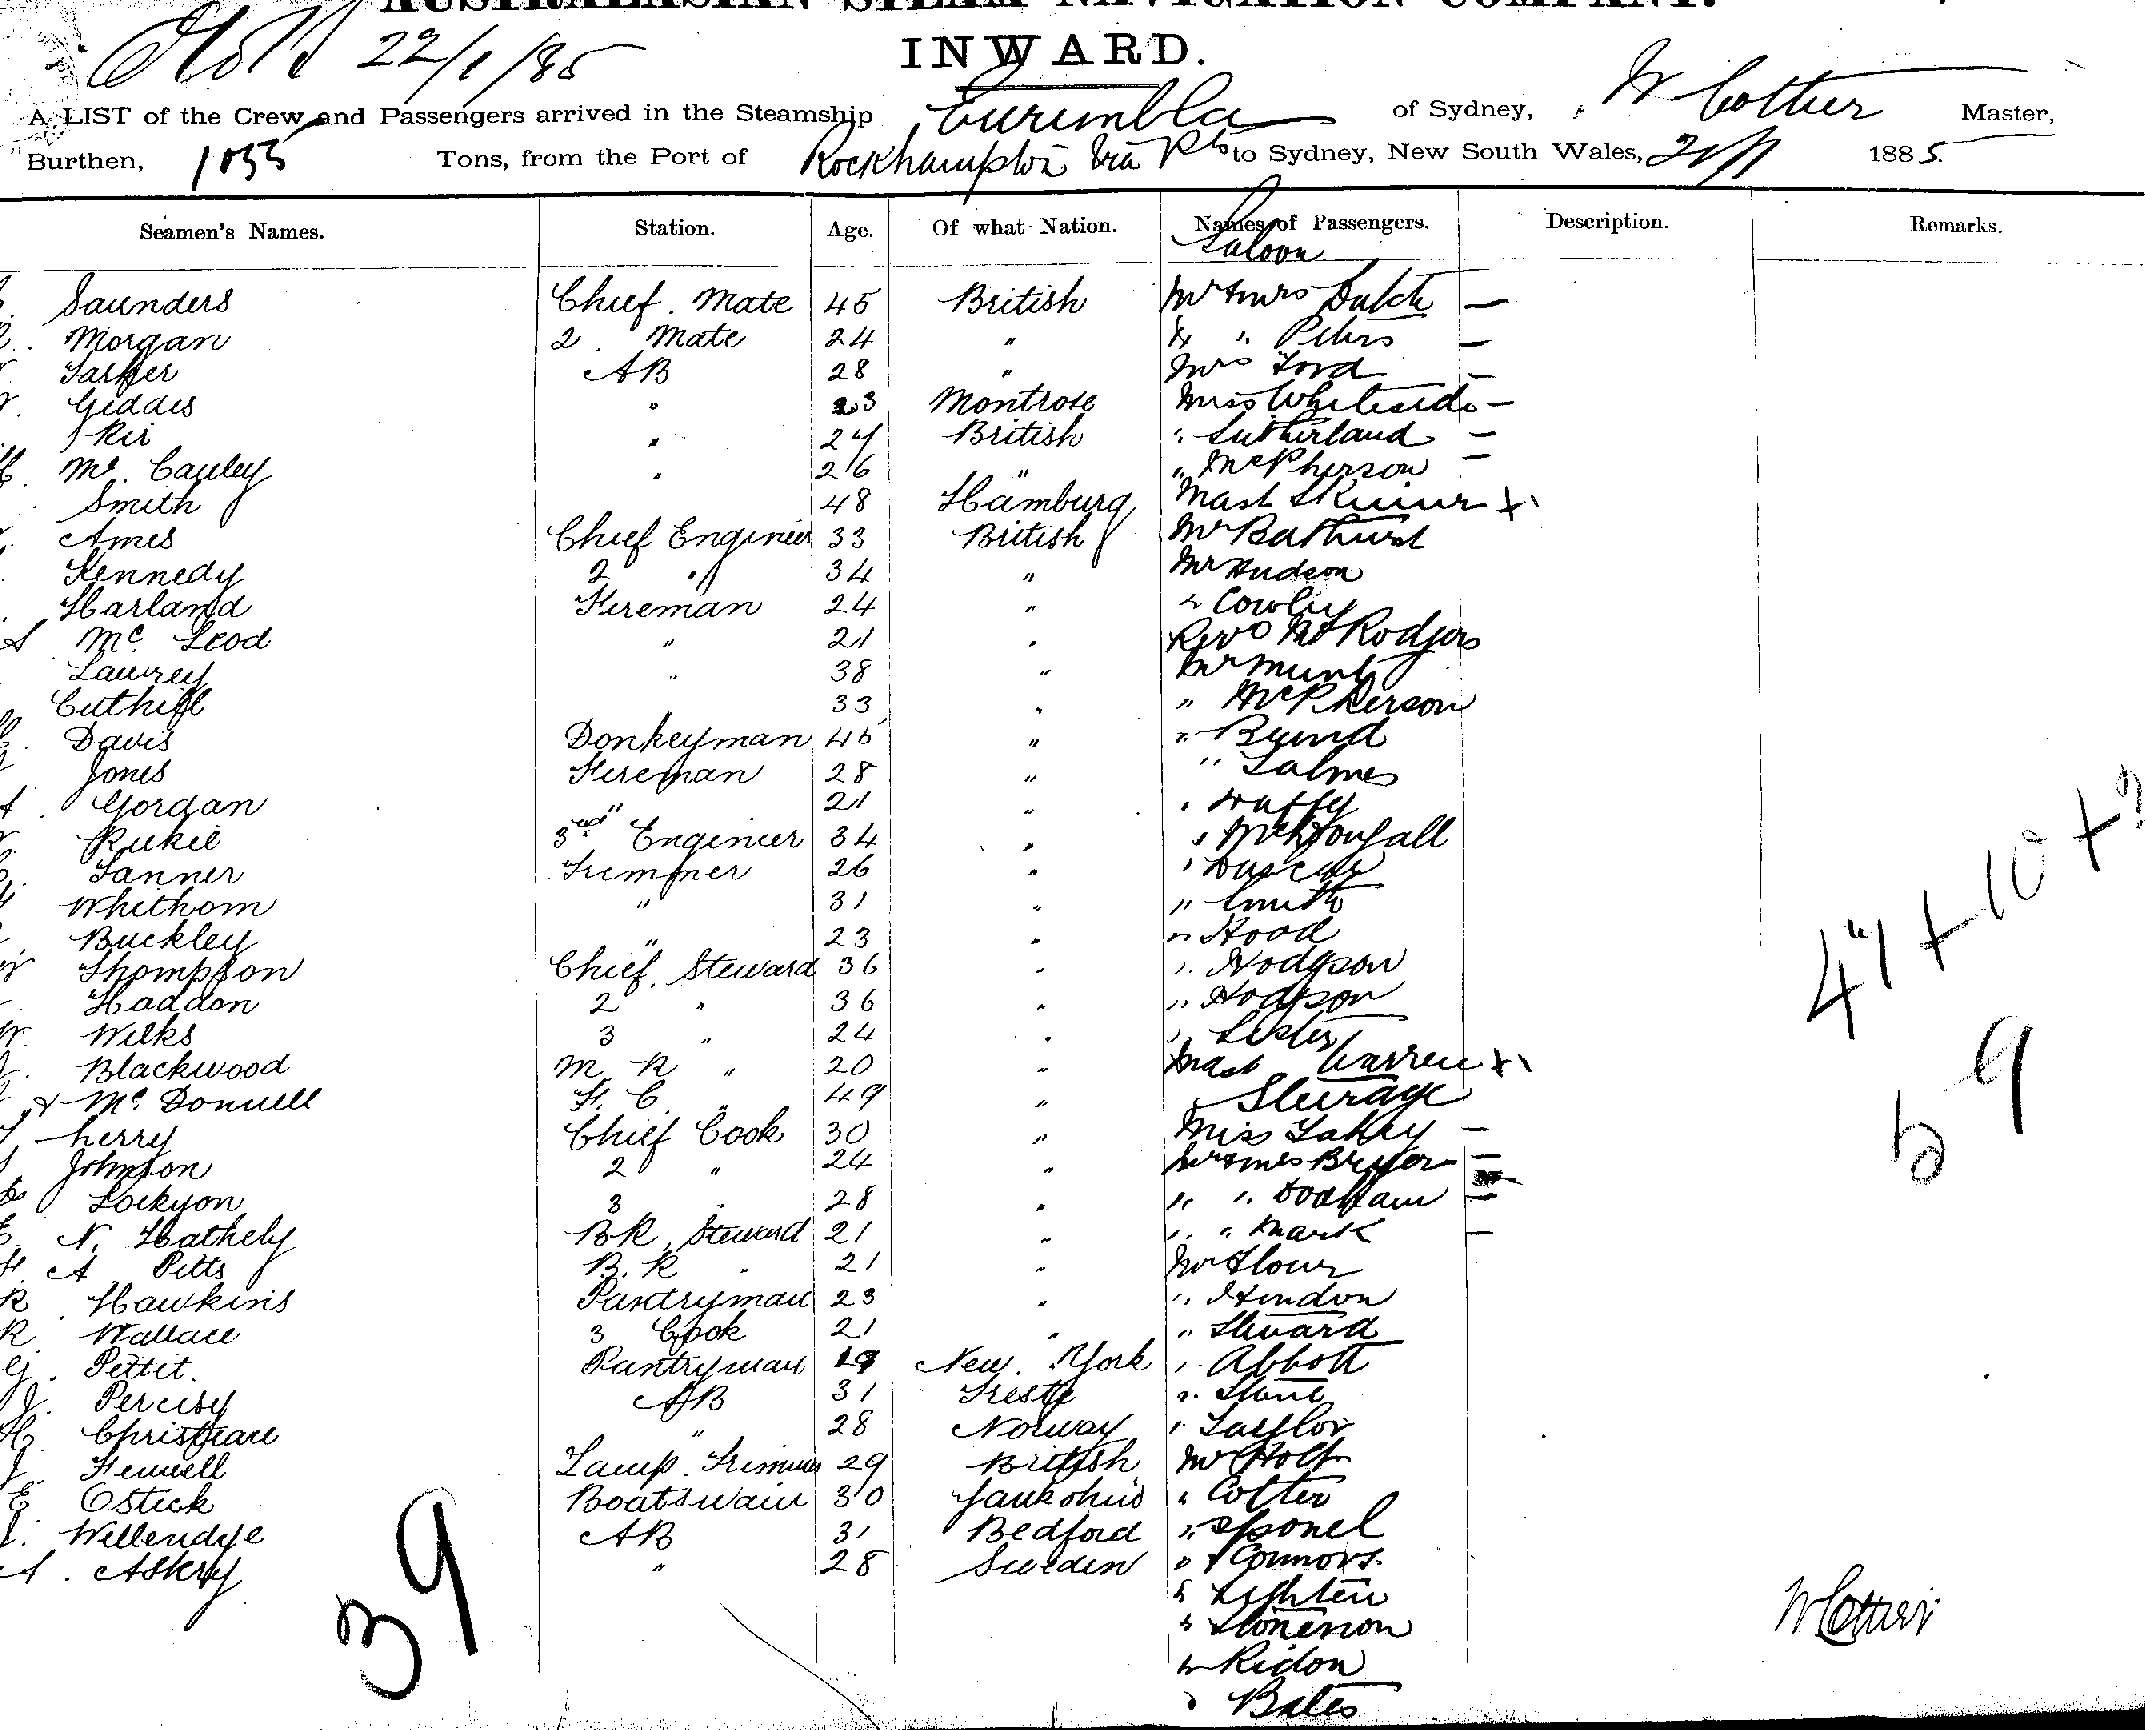 AUSTRALASIAN STEAM NAVIGATION COMPANY.
22/1/85
INWARD.
A LIST of the Crew and Passengers arrived in the Steamship Eurimbla of Sydney, W Cottier Master,
Burthen, 1055 Tons, from the Port of Rockhampton via Pts to Sydney, New South Wales, 1885.
Seamen's Names. Station. Age. Of what Nation. Names of Passengers. Description. Remarks.
Saloon
Saunders Chief Mate 45 British Mr & Mrs —
Morgan 2 Mate 24 " " " Peters —
AB 28 " Mrs Ford —
Giddis " 23 Montrose Miss Whiteside —
" 27 British " Sutherland —
Mc Cauley " 26 " " McPherson —
Smith 48 Hamburg Mast Skinner
Ames Chief Engineer 33 British Mr Bathurst
Kennedy 2 " 34 " Mr Hudson
Harland Fireman 24 " " Cowley
Mc Leod " 21 " Revd Mr Rodgers
Lawrey " 38 " Mr Munt
Cuthill 33 " " McPherson
Davis Donkeyman 45 " "
Jones Fireman 28 " "
Gordan " 21 " "
3rd Engineer 34 " " McDougall
Tanner Trimmer 26 " "
Whithom " 31 " " Smith
Buckley " 23 " " Hood
Thompson Chief Steward 36 " " Hodgson
Haddon 2 " 36 " " Hodgson
W. Wilks 3 " 24 " "
Blackwood M R " 20 " Mast Warren
Mc Donnell F. C. " 49 " Steerage
Cherry Chief Cook 30 " Miss Lahey —
Johnson 2 " 24 " Mr & Mrs Bryer —
Lockyon 3 " 28 " " " —
N. Hathely BR Steward 21 " " " Mark —
A Pitts B. R " 21 " Mr Flour
R Hawkins Pantryman 23 " " Hindon
R Wallace 3 Cook 21 " " Steward
G. Pettit. Pantryman 19 New York " Abbott
J. AB 31 Trieste "
Christian " 28 Norway " Taylor
J. Fennell Lamp Trimmer 29 British Mr Holt
E Ostick Boatswain 30 " Cotter
AB 31 Bedford "
A. Askey " 28 Sweden " Connors.
" Lighten
"
" Ridon
" Bates
47 + 10 + 2
59
39
W Cottier